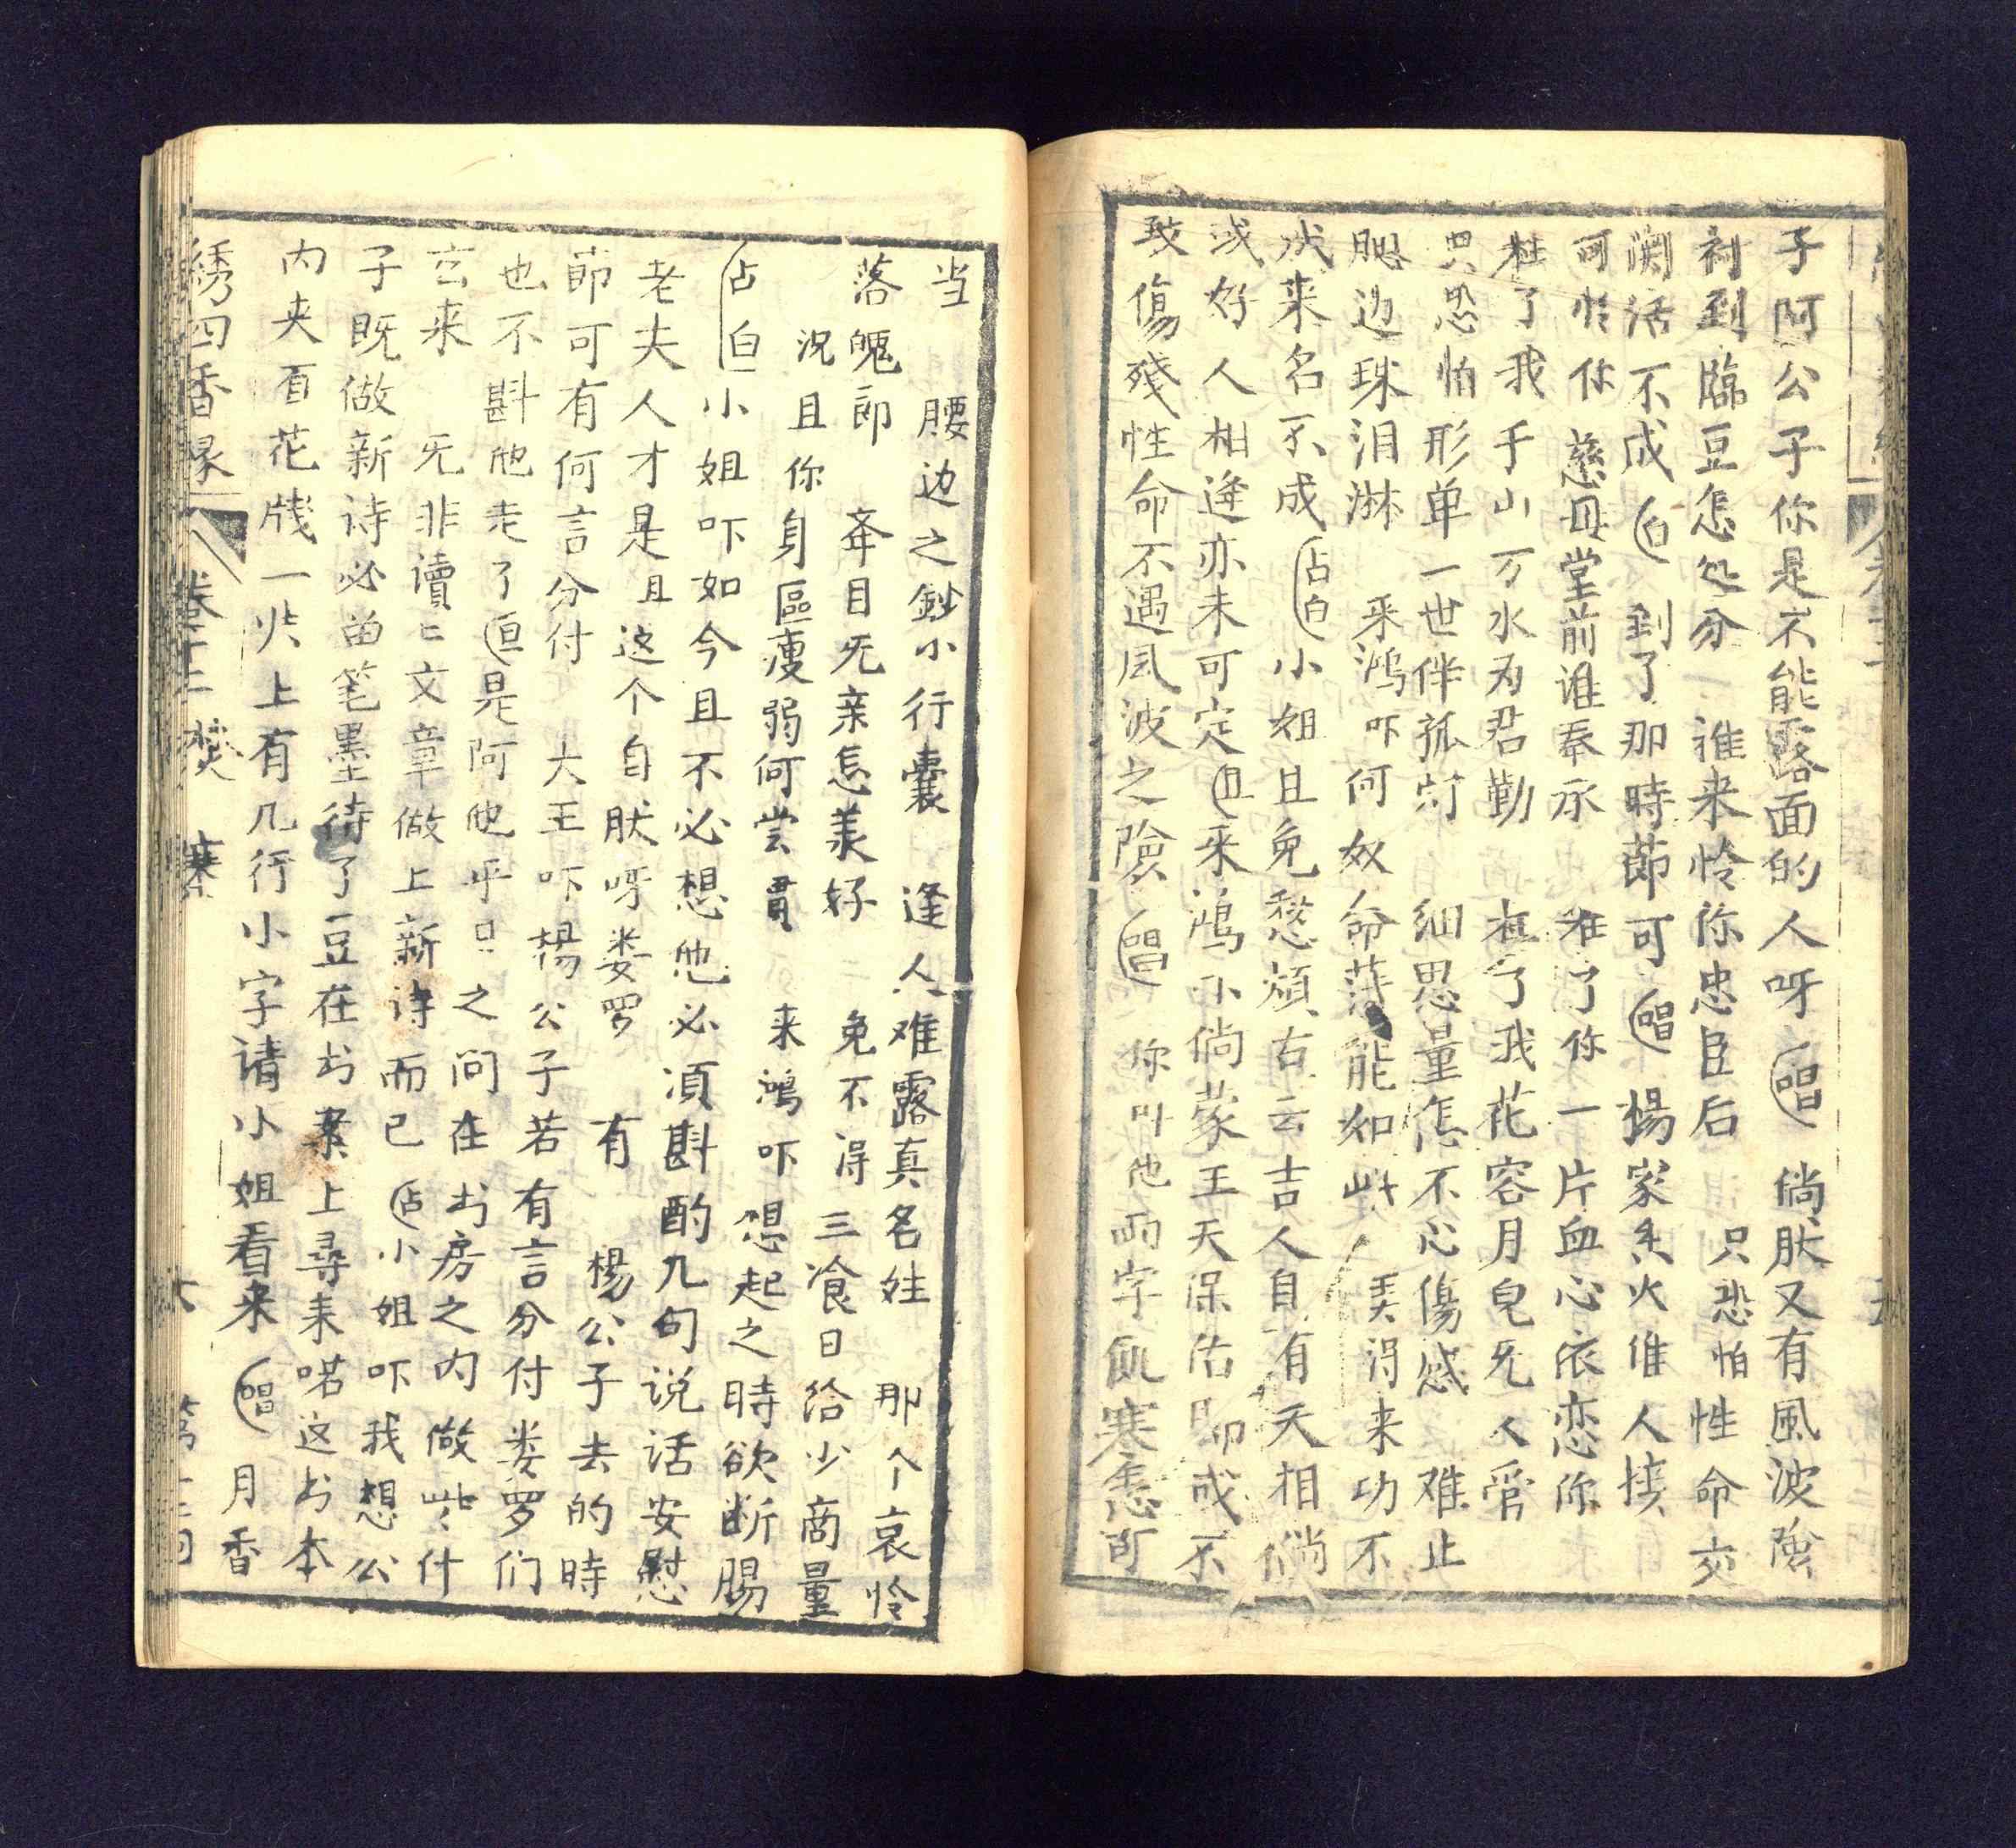 子阿公子你是不能露面的人呀唱倘肰又有風波險
衬到臨豆怎処分 誰来怜你忠臣后 只恐怕性命交
関活不成白 到了那時節可唱楊家香火佳人接
可怜你 慈母堂前谁奉承 难了你一片血心依恋你
枉了我千山万水为君勤 枉了我花容月皃旡人管
只恐怕形单一世伴孤灯 细思量怎不心傷感 难止
腮边珠泪淋 采鴻吓何奴命薄能如此 美得来功不
成来名不成占白小姐且免愁煩古云吉人自有天相倘
或好人相逢亦未可定旦采鴻吓倘蒙王天保佑即或不
致傷殘性命不遇风波之險唱 你叫他两字飢寒怎可
当 腰边之鈔小行囊 逢人难露真名姓 那个哀怜
落魄郎 奔目旡亲怎羙好 免不得三飡日给少商量
況且你身區瘦弱何尝貫 来鴻吓想起之時欲断腸
占白小姐吓如今且不必想他必湏斟酌几句说话安慰
老夫人才是旦这个自肰呀娄罗 有 楊公子去的時
節可有何言分付 大王吓楊公子若有言分付娄罗们
也不斟他走了旦是阿他平日之问在书房之内做些什
玄来 旡非讀匕文章做上新诗而已占小姐吓我想公
子既做新诗必畄笔墨待了一豆在书案上尋来喏这书本
内夹百花牋一张上有几行小字请小姐看来唱月香
綉四香緣 卷十二 焚寨 六 第十二回